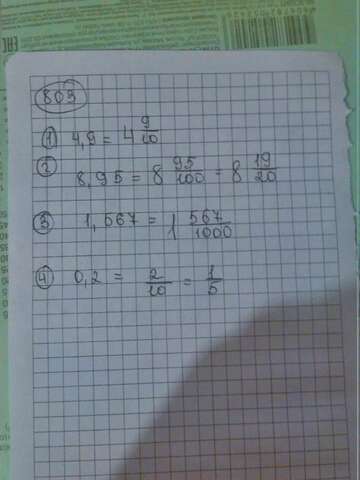 803
1) 4,9 = 4 9/10
2) 8,95 = 8 95/100 = 8 19/20
3) 1,567 = 1 567/1000
4) 0,2 = 2/10 = 1/5